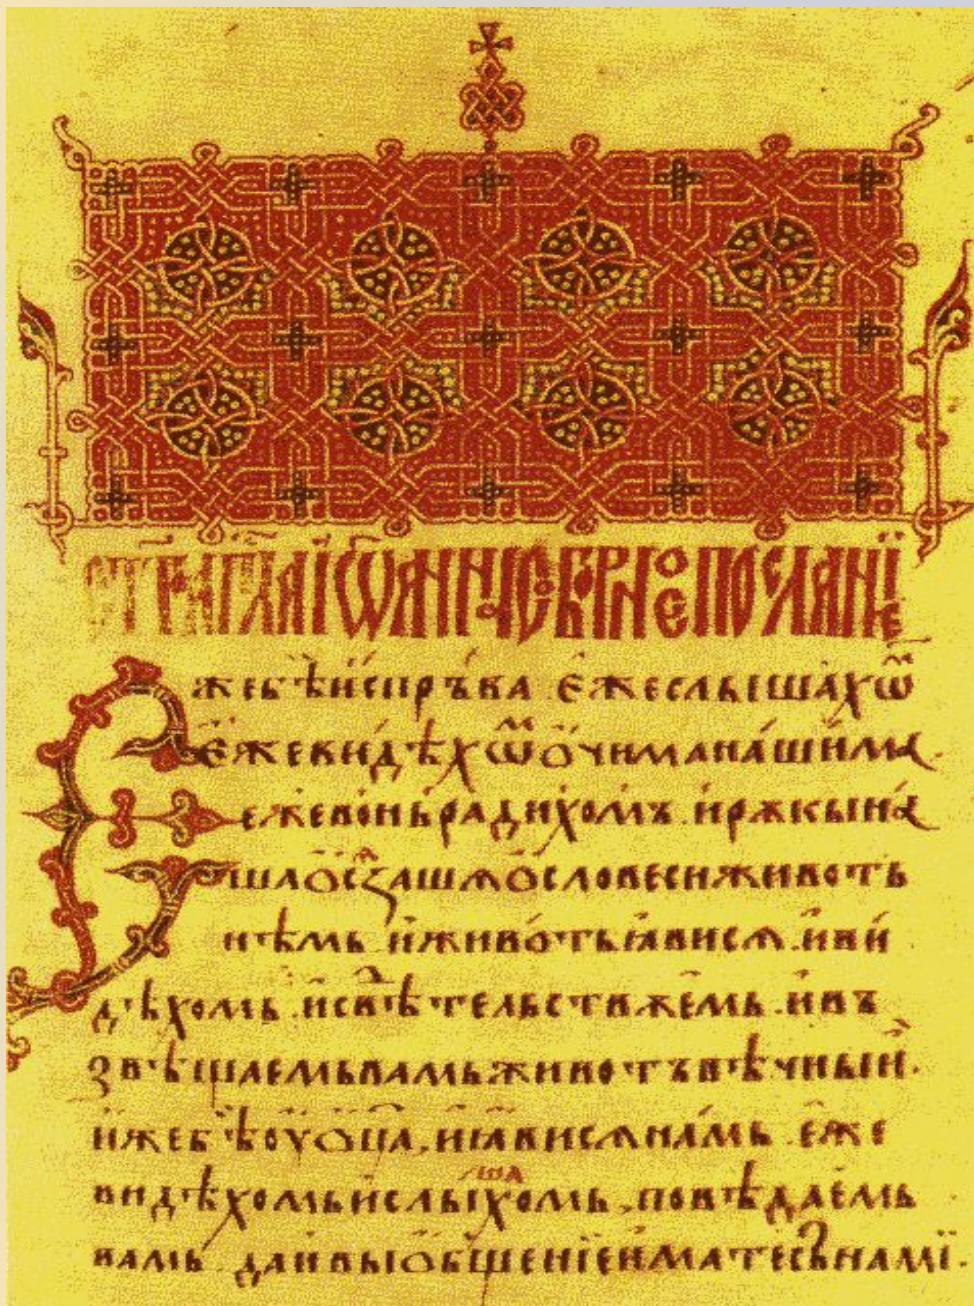 ст҃го ап҃ла іѡанна съборное посланїе
Еже бѣ и́спръва . є́же слышахѡⷨ
є́же ви́дѣхѡⷨ о́чима на́шима .
еже вонь ꙁрадихомъ . и рѫкы на
шѧ о҆сѧꙁашѧ о҆ словеси животь
нѣмь . и́ живо́ть ꙗ́висѧ . и ви́
дѣхомь . и́ свѣ́тельствꙋемь . и́ въ
звѣщаемь вамь животъ вѣчныи .
и́же бѣ оу о҆ц҃а , и́ ꙗ́висѧ на́мь . є́же
видѣхомь и́ слыⷲ҇хомь , повѣдаемь
вамь . да и вы о҆бщенїе и́мате съ нами .